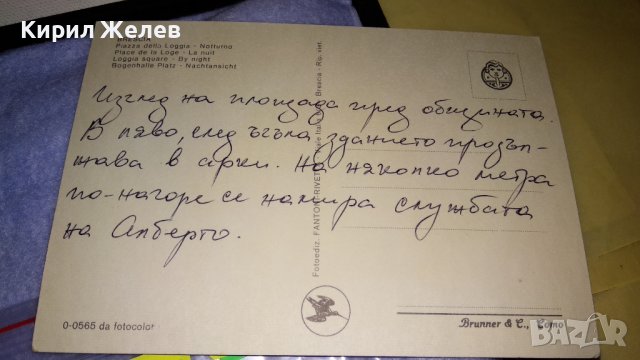 Кирил Желев
BRESCIA
Piazza della Loggia - Notturno
Place de la Loge - La nuit
Loggia square - By night
Bogenhalle Platz - Nachtansicht
Изглед на площада пред общината.
В ляво, след ъгъла зданието продъл-
жава в арки. На няколко метра
по-нагоре се намира службата
на Алберто.
Fotoediz. FANTONI-RIVETTA
Brescia - Rip. viet.
0-0565 da fotocolor
Brunner & C., Como
BAZAR